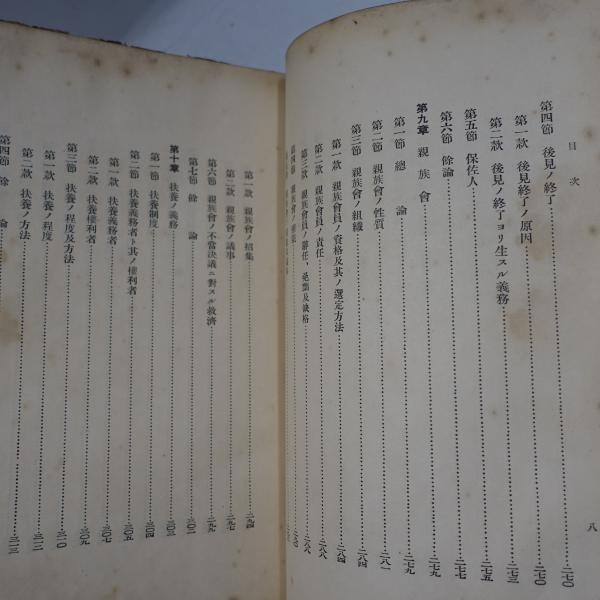 目次
第四節 後見ノ終了 二七〇
第一款 後見終了ノ原因 二七〇
第二款 後見ノ終了ヨリ生スル義務 二七三
第五節 保佐人 二七五
第六節 餘論 二七七
第九章 親族會 二七九
第一節 總論 二七九
第二節 親族會ノ性質 二八一
第三節 親族會ノ組織 二八四
第一款 親族會員ノ資格及其ノ選定方法 二八四
第二款 親族會員ノ責任 二八八
第三款 親族會員ノ辭任、免黜及缺格 二八八
第四節 親族會ノ
八
第一款 親族會ノ招集 二九四
第二款 親族會ノ議事 二九七
第六節 親族會ノ不當決議ニ對スル救濟 二九九
第七節 餘論 三〇一
第十章 扶養ノ義務 三〇三
第一節 扶養制度 三〇四
第二節 扶養義務者ト其ノ權利者 三〇五
第一款 扶養義務者 三〇七
第二款 扶養權利者 三〇九
第三節 扶養ノ程度及方法 三一〇
第一款 扶養ノ程度 三一二
第二款 扶養ノ方法 三一三
第四節 餘論